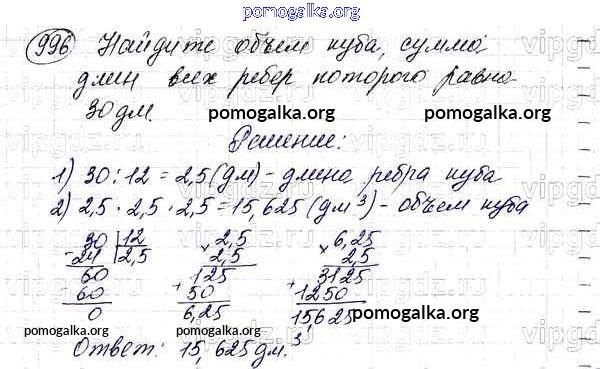 pomogalka.org
996 Найдите объем куба, сумма
длин всех ребер которого равна
30 дм.
pomogalka.org pomogalka.org
Решение:
1) 30 : 12 = 2,5 (дм) - длина ребра куба
2) 2,5 · 2,5 · 2,5 = 15,625 (дм³) - объем куба
30 | 12
- 24 | 2,5
60
- 60
0
2,5
× 2,5
125
+ 50
6,25
6,25
× 2,5
3125
+ 1250
15,625
pomogalka.org pomogalka.org
Ответ: 15,625 дм.³
vipgdz.ru